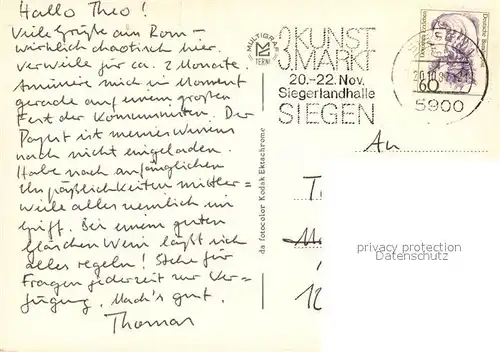 Hallo Theo!
Viele Grüße aus Rom –
wirklich chaotisch hier.
Verweile für ca. 2 Monate.
Amüsiere mich im Moment
gerade auf einem großen
Fest der Kommunisten. Der
Papst ist meines Wissens
noch nicht eingeladen.
Habe nach anfänglichen
Unpäßlichkeiten mittler=
weile alles ziemlich im
Griff. Bei einem guten
Fläschchen Wein läßt sich
alles regeln! Stehe für
Fragen jederzeit zur Ver=
fügung. Mach's gut.
Thomas
da fotocolor Kodak Ektachrome
MULTIGRAF
TERNI
3. KUNST
MARKT
20.-22. Nov.
Siegerlandhalle
SIEGEN
SIEGEN
20.10.87
5900
60
Deutsche Bundespost
An
T
12
privacy protection
Datenschutz